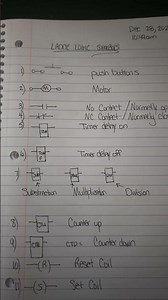 Dec 28, 202
Ladder Logic Symbols
1) push buttons
2) M Motor
3) No Contact / Normally op
4) NC Contact / Normally clo
5) Timer delay on
6) Timer delay off
7)
Subtraction Multiplication Division
8) Counter up
9) CTD = Counter down
10) (R) Reset Coil
11) (S) Set Coil